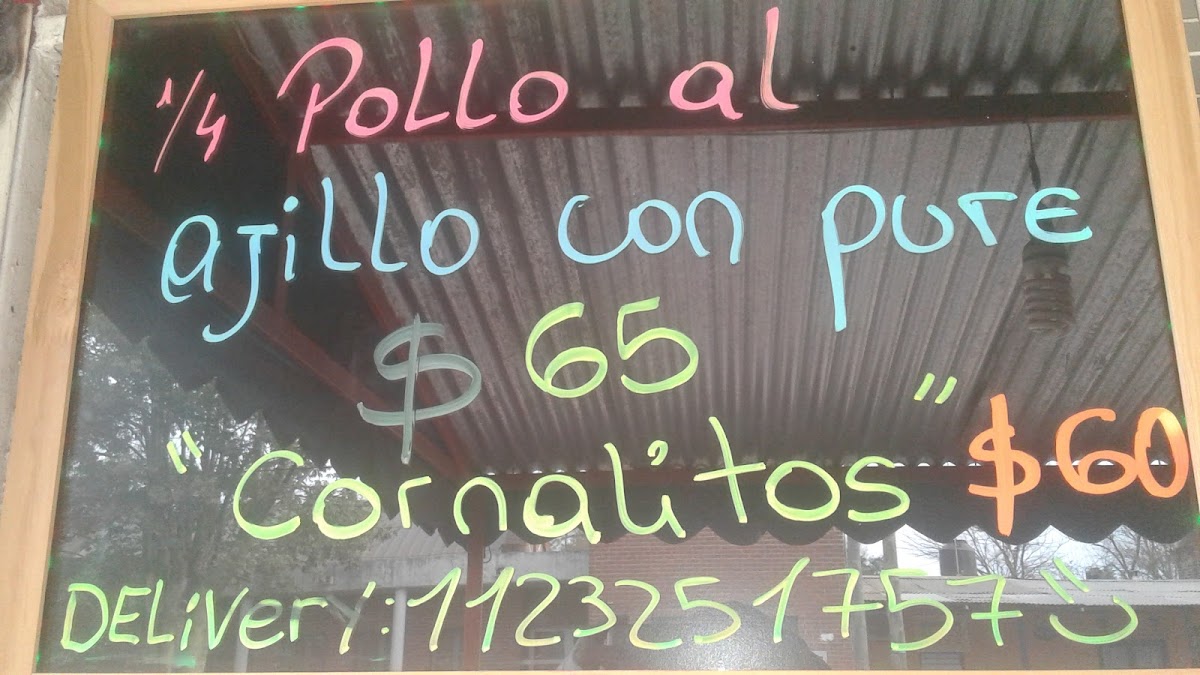 1/4 Pollo al
ajillo con pure
$ 65
"Cornalitos" $60
DELivery: 1123251757 :)